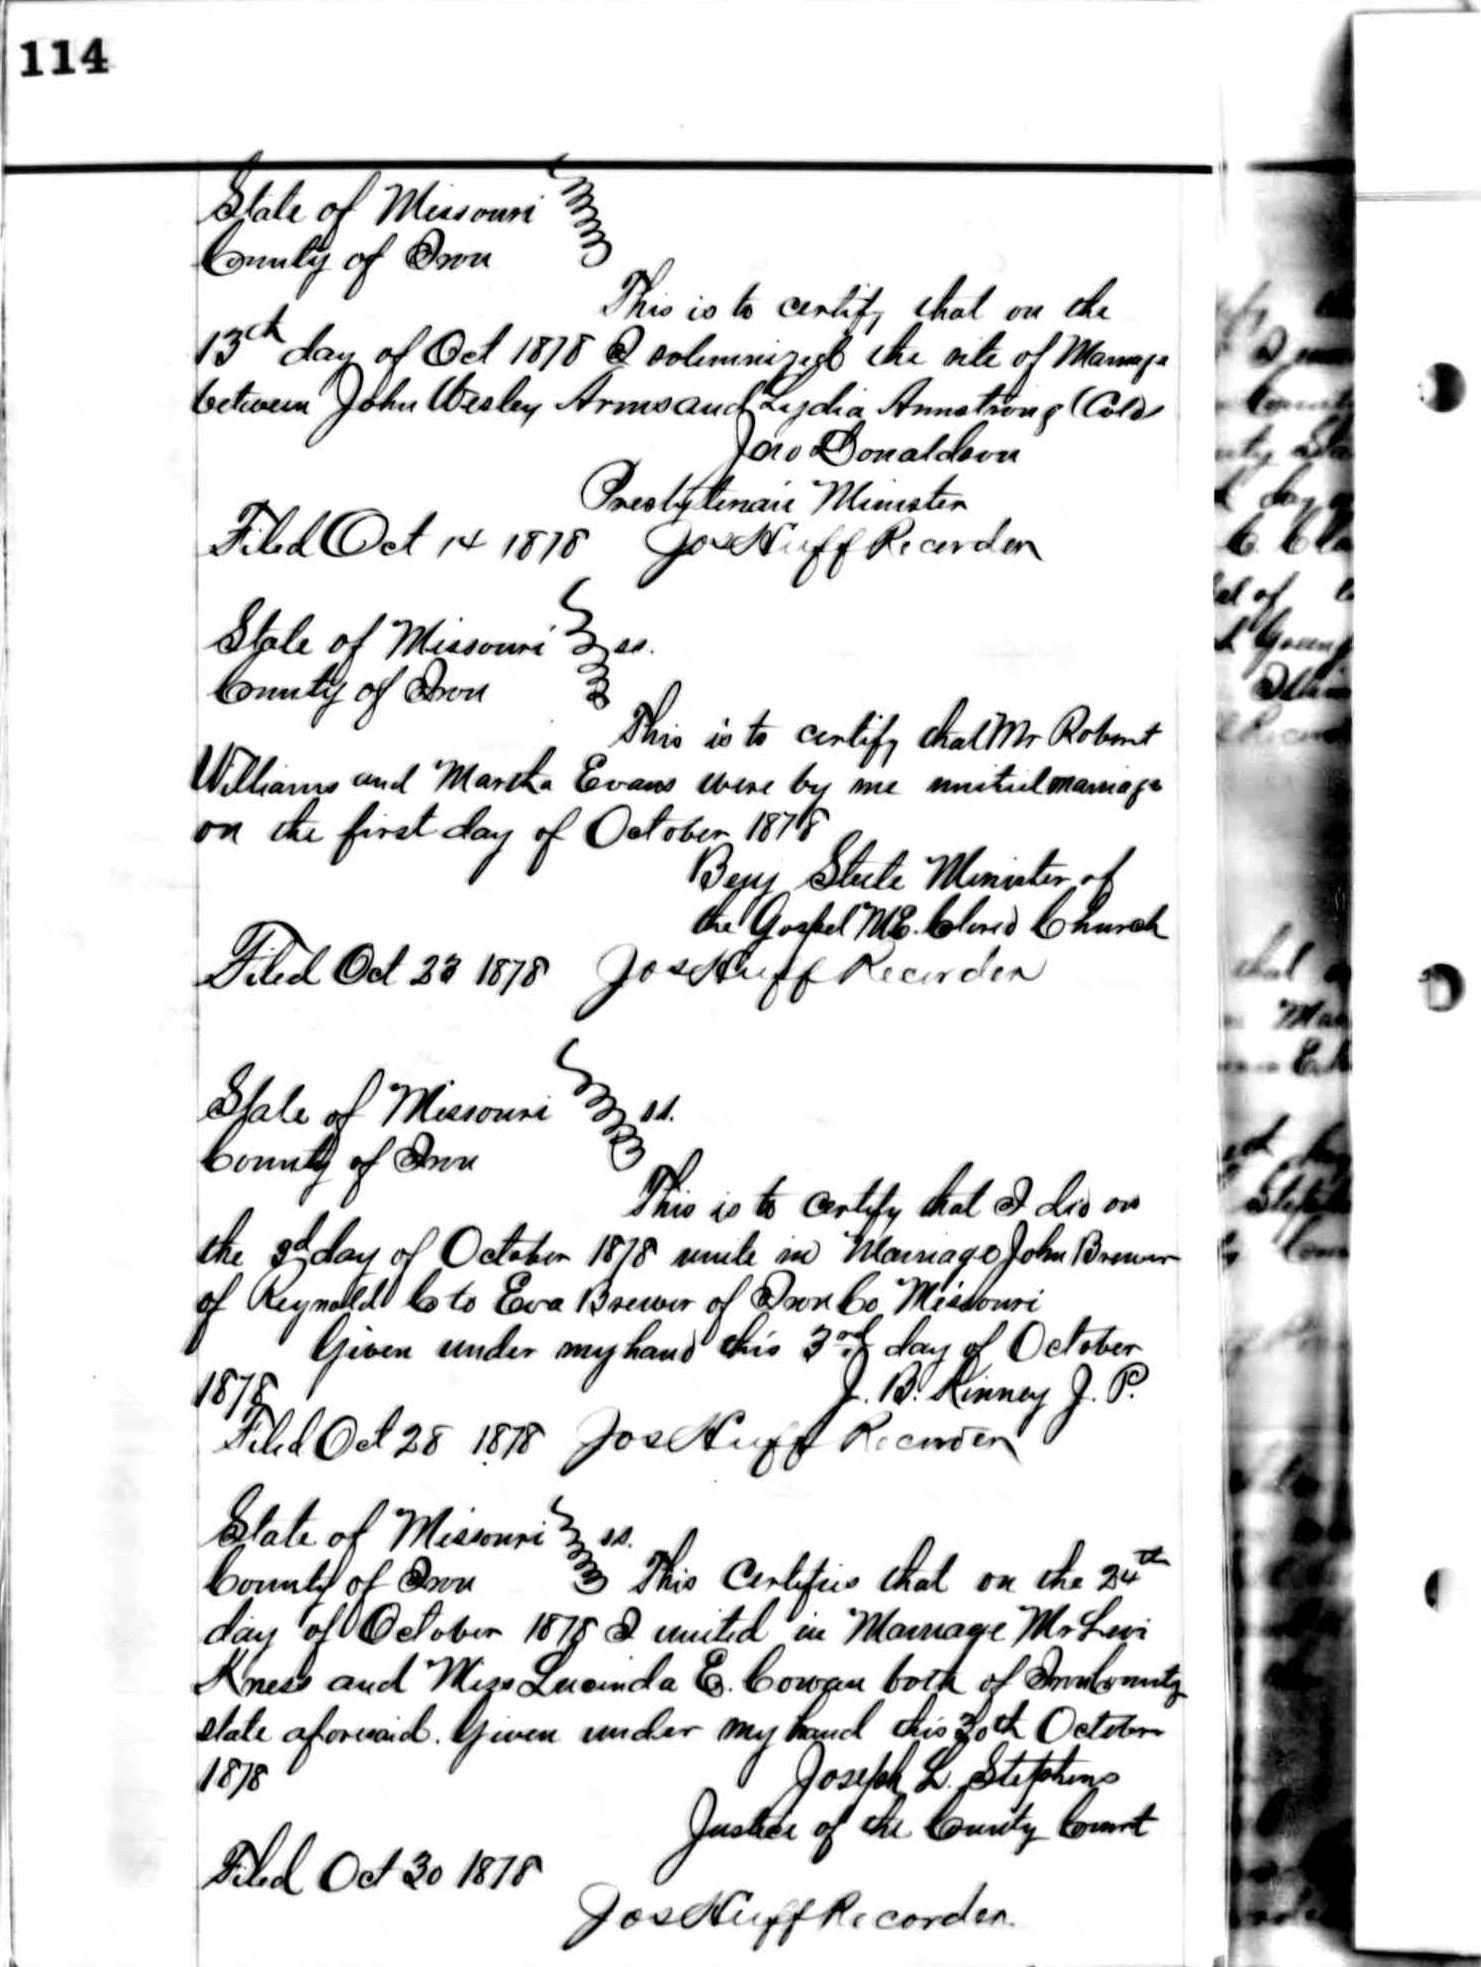 114
State of Missouri
County of Iron
This is to certify that on the
13th day of Oct 1878 I solemnized the rite of Marriage
between John Wesley Arms and Lydia Armstrong (Cold
Jno Donaldson
Presbyterian Minister
Filed Oct 14 1878 Jos Huff Recorder
State of Missouri ss.
County of Iron
This is to certify that Mr Robert
Williams and Martha Evans were by me united marriage
on the first day of October 1878
Benj Steele Minister of
the Gospel M.E. Colored Church
Filed Oct 23 1878 Jos Huff Recorder
State of Missouri ss.
County of Iron
This is to certify that I did on
the 3d day of October 1878 unite in Marriage John Brewer
of Reynolds Co to Eva Brewer of Iron Co Missouri
Given under my hand this 3rd day of October
1878 J. B. Kinney J. P.
Filed Oct 28 1878 Jos Huff Recorder
State of Missouri ss.
County of Iron This Certifies that on the 24th
day of October 1878 I united in Marriage Mr Levi
Kness and Miss Lucinda E. Cowan both of Iron County
state aforesaid. Given under my hand this 30th October
1878 Joseph L. Stephens
Justice of the County Court
Filed Oct 30 1878
Jos Huff Recorder.